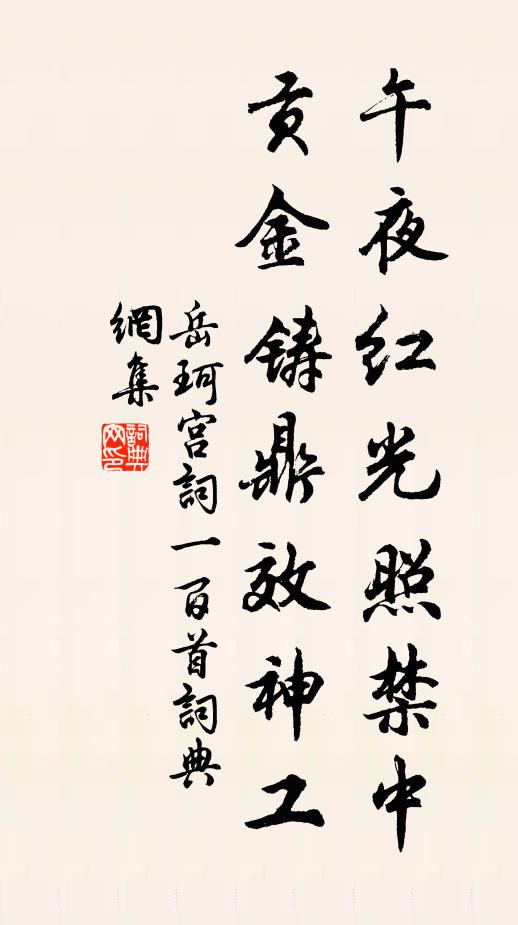 午夜红光照禁中
贡金铸鼎效神工
岳珂宫词一百首詞典
網集
詞典
网印